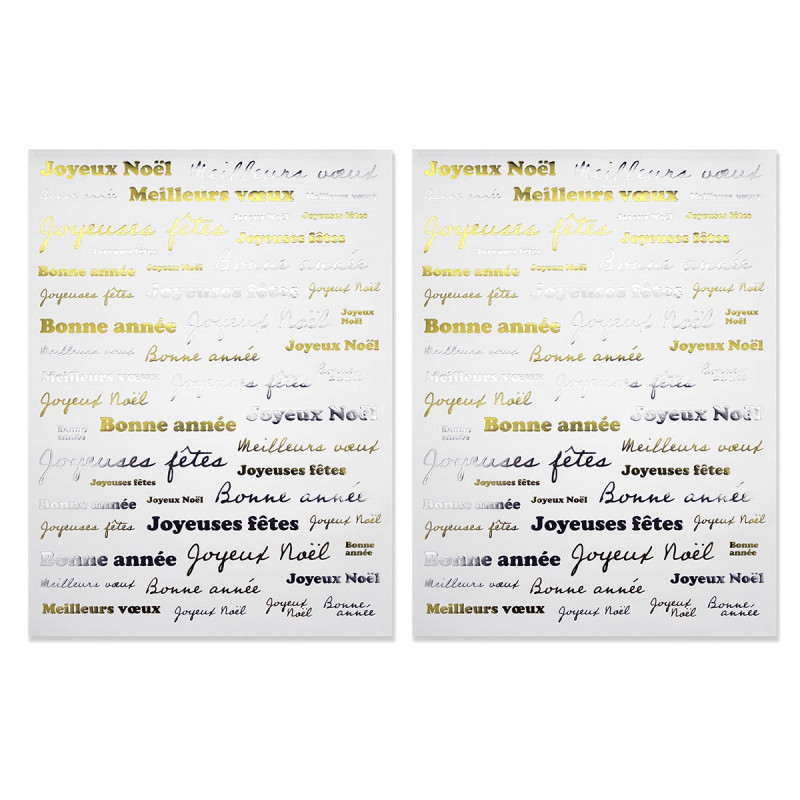 Joyeux Noël Meilleurs vœux
Bonne année Meilleurs vœux Meilleurs vœux
Joyeux Noël Joyeuses fêtes
Joyeuses fêtes Joyeuses fêtes
Joyeuses fêtes Bonne année
Bonne année Joyeux Noël
Joyeuses fêtes Joyeuses fêtes Joyeux Noël
Bonne année Joyeux Noël Joyeux
Noël
Meilleurs vœux Bonne année Joyeux Noël
Meilleurs vœux Joyeuses fêtes Bonne
année
Joyeux Noël
Bonne
année
Bonne année Joyeux Noël
Joyeuses fêtes Meilleurs vœux
Joyeuses fêtes
Joyeuses fêtes
Bonne année Joyeux Noël Bonne année
Joyeuses fêtes Joyeuses fêtes Joyeux Noël
Bonne année Joyeux Noël Bonne
année
Meilleurs vœux Bonne année Joyeux Noël
Meilleurs vœux Joyeux Noël Joyeux
Noël
Bonne
année
Joyeux Noël Meilleurs vœux
Bonne année Meilleurs vœux Meilleurs vœux
Joyeux Noël Joyeuses fêtes
Joyeuses fêtes Joyeuses fêtes
Joyeuses fêtes Bonne année
Bonne année Joyeux Noël
Joyeuses fêtes Joyeuses fêtes Joyeux Noël
Bonne année Joyeux Noël Joyeux
Noël
Meilleurs vœux Bonne année Joyeux Noël
Meilleurs vœux Joyeuses fêtes Bonne
année
Joyeux Noël
Bonne
année
Bonne année Joyeux Noël
Joyeuses fêtes Meilleurs vœux
Joyeuses fêtes
Joyeuses fêtes
Bonne année Joyeux Noël Bonne année
Joyeuses fêtes Joyeuses fêtes Joyeux Noël
Bonne année Joyeux Noël Bonne
année
Meilleurs vœux Bonne année Joyeux Noël
Meilleurs vœux Joyeux Noël Joyeux
Noël
Bonne
année